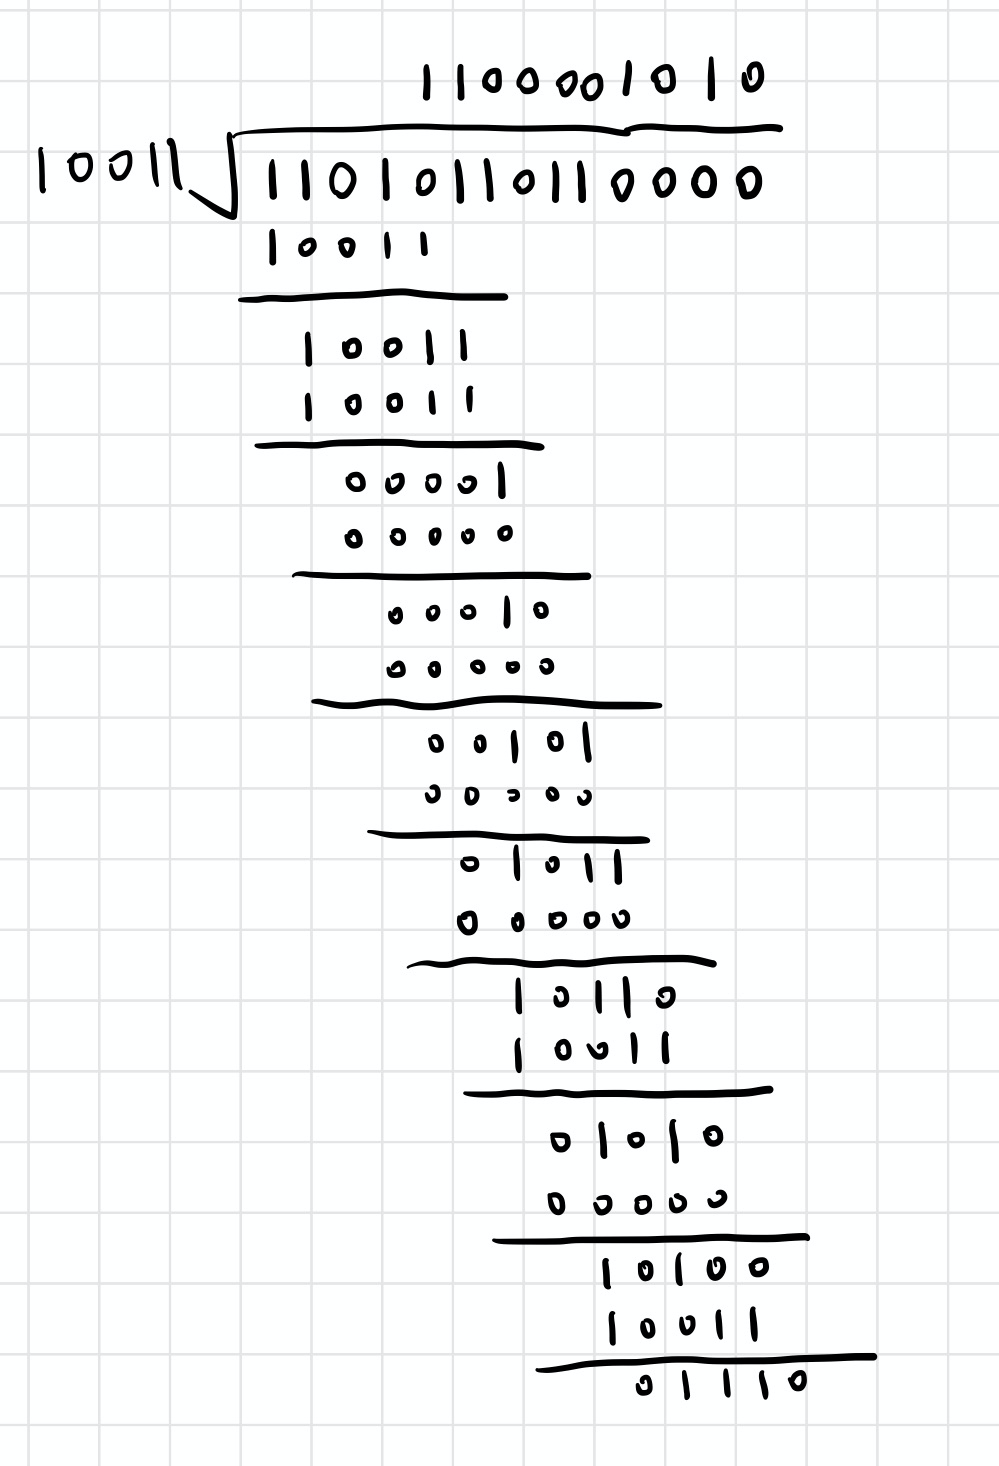 1100001010
10011 11010110110000
10011
10011
10011
00001
00000
00010
00000
00101
00000
01011
00000
10110
10011
01010
00000
10100
10011
01110